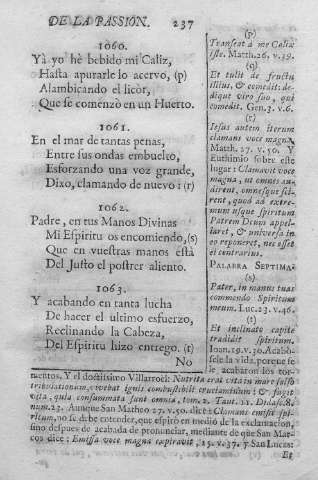 DE LA PASSION. 237
1060.
Yà yo hè bebido mi Caliz,
Hasta apurarle lo acervo, (p)
Alambicando el licòr,
Que se comenzò en un Huerto.
1061.
En el mar de tantas penas,
Entre sus ondas embuelto,
Esforzando una voz grande,
Dixo, clamando de nuevo: (r)
1062.
Padre, en tus Manos Divinas
Mi Espiritu os encomiendo, (s)
Que en vuestras manos està
Del Justo el postrer aliento.
1063.
Y acabando en tanta lucha
De hacer el ultimo esfuerzo,
Reclinando la Cabeza,
Del Espiritu hizo entrego. (t)
No
(p)
Transeat à me Calix
iste. Matth. 26. v. 39.
(q)
Et tulit de fructu
illius, & comedit: de-
ditque viro suo, qui
comedit. Gen. 3. v. 6.
(r)
Iesus autem iterum
clamans voce magna,
Matth. 27. v. 50. Y
Euthimio sobre este
lugar: Clamavit voce
magna, ut omnes au-
dirent, omnesque sci-
rent, quod ad extre-
mum usque spiritum
Patrem Deum appel-
laret, & universa in
eo reponeret, nec esset
ei contrarius.
PALABRA SEPTIMA.
(s)
Pater, in manus tuas
commendo Spiritum
meum. Luc. 23. v. 46.
(t)
Et inclinato capite
tradidit spiritum.
Ioan. 19. v. 30. Acabò-
sele la vida, porque se
le acabaron los tor-
mentos. Y el doctissimo Villarroel: Nutrita erat vita in mari salso
tribulationum, & fugit
vita, quia consumata sunt omnia, tom. 2. Taut. 11. Didasc. 8.
num. 23. Aunque San Matheo 27. v. 50. dice: Clamans emisit spi-
ritum, no se debe entender, que espirò en medio de la exclamacion,
sino despues de acabada de pronunciar, mediante de que San Mar-
cos dice: Emissa voce magna expiravit, 15. v. 37. y San Lucas:
Et